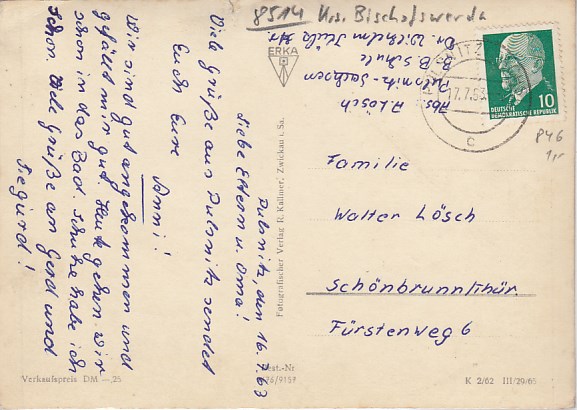 8514 Krs. Bischofswerda
Pulsnitz, den 16.7.63
Liebe Eltern u. Oma!
Viele Grüße aus Pulsnitz sendet
Euch Eure
Anni!
Wir sind gut angekommen und
gefällt mir gut. Heute gehen wir
schon in das Bad. Schuhe habe ich
schon. Viele Grüße an Gerd und
Siegurd!
Abs. A. Lösch
Pulsnitz-Sachsen
B B Schule
Dr. Wilhelm Külz Str.
ERKA
Fotografischer Verlag R. Kallmer, Zwickau i. Sa.
PULSNITZ
17.7.63
c
10
DEUTSCHE
DEMOKRATISCHE REPUBLIK
P46
1,-
Familie
Walter Lösch
Schönbrunn/Thür.
Fürstenweg 6
Verkaufspreis DM —,25
Best.-Nr
/9157
K 2/62 III/29/65